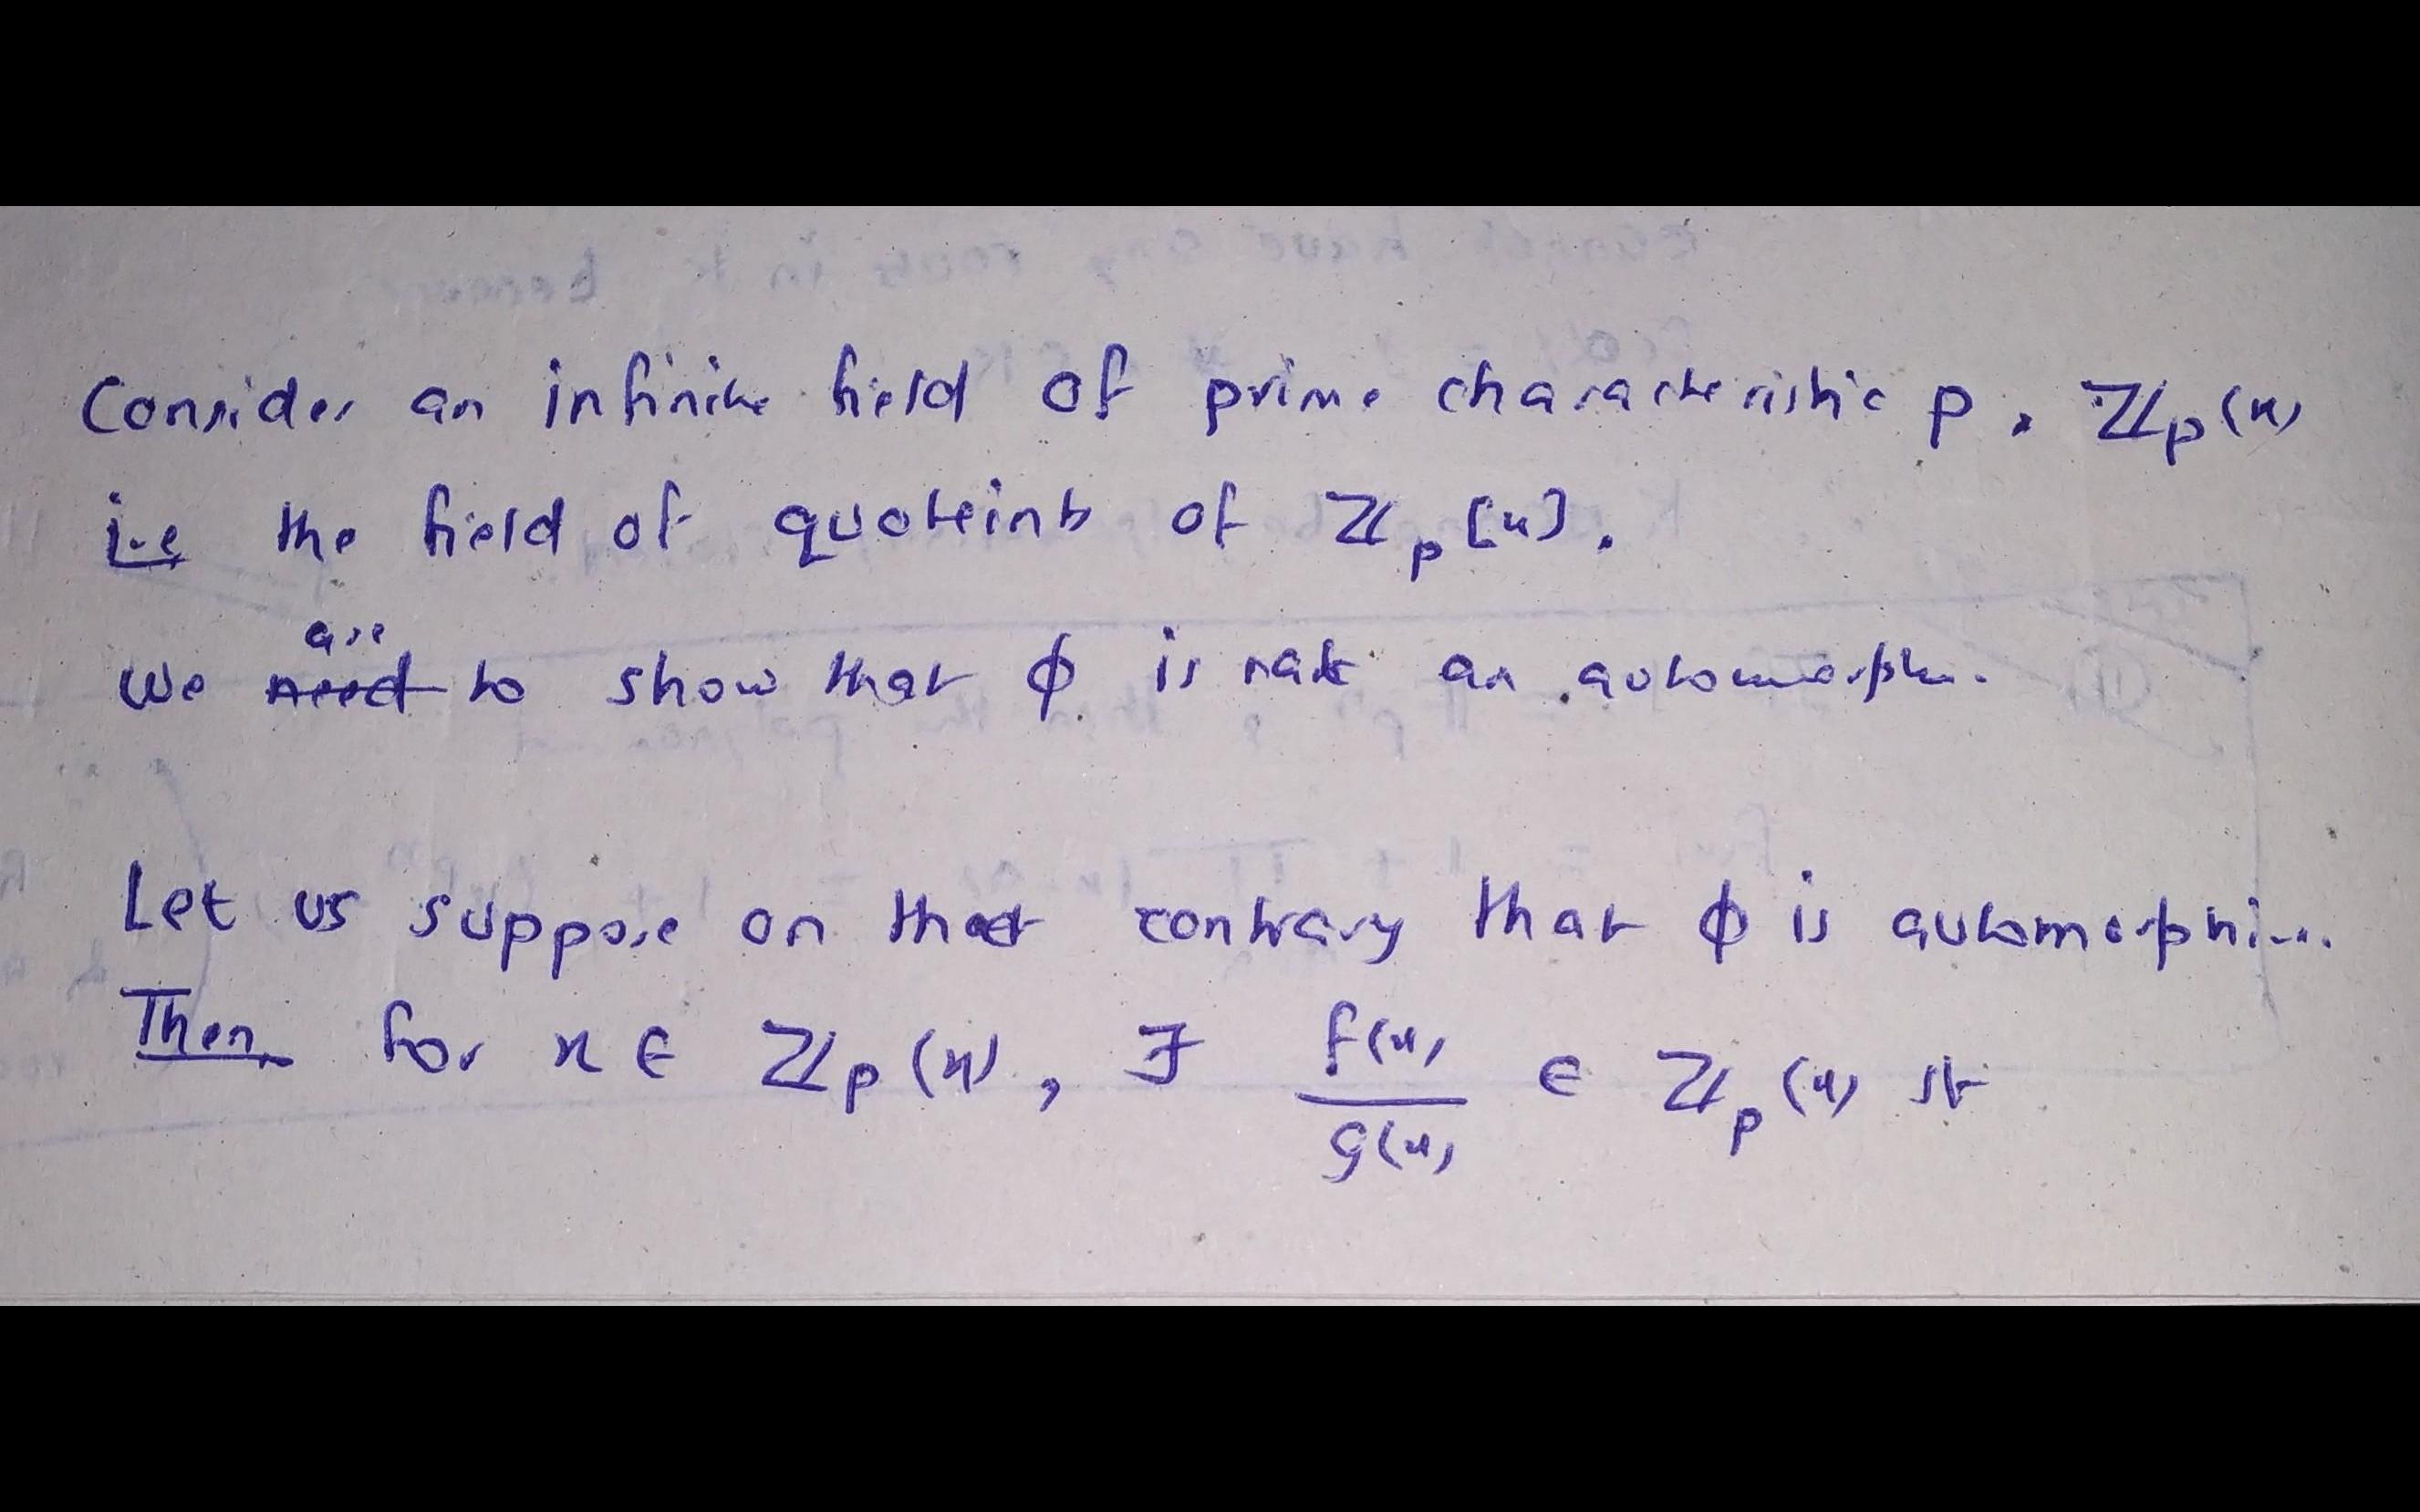 Consider an infinite field of prime characteristic p, ℤp(x)
i.e the field of quoteints of ℤp[x].
are
we need to show that ϕ is not an automorphi.
Let us suppose on the contrary that ϕ is automorphi...
Then for x ∈ ℤp(x), ∃ f(x)/g(x) ∈ ℤp(x) st